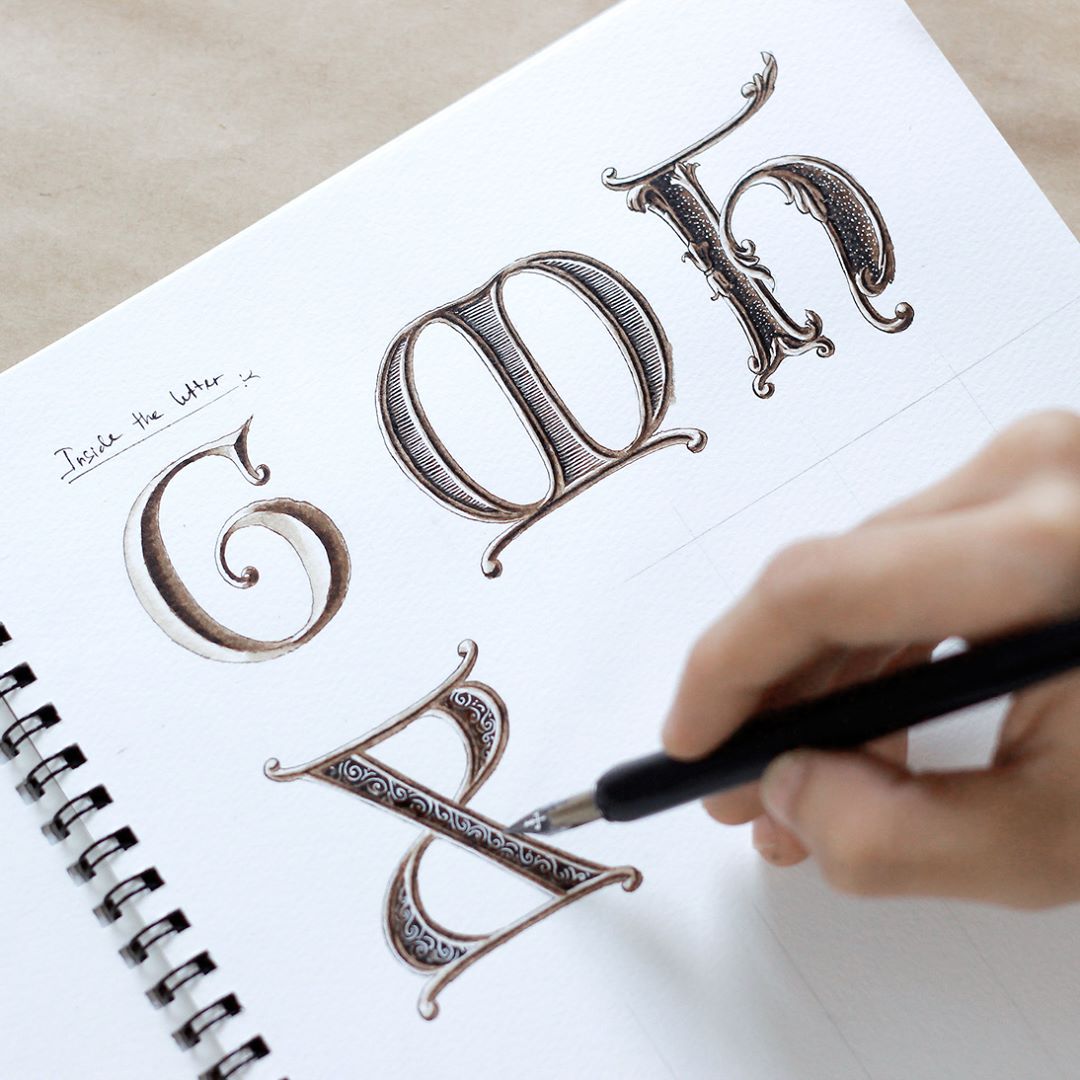 Inside the letter
G M h
X